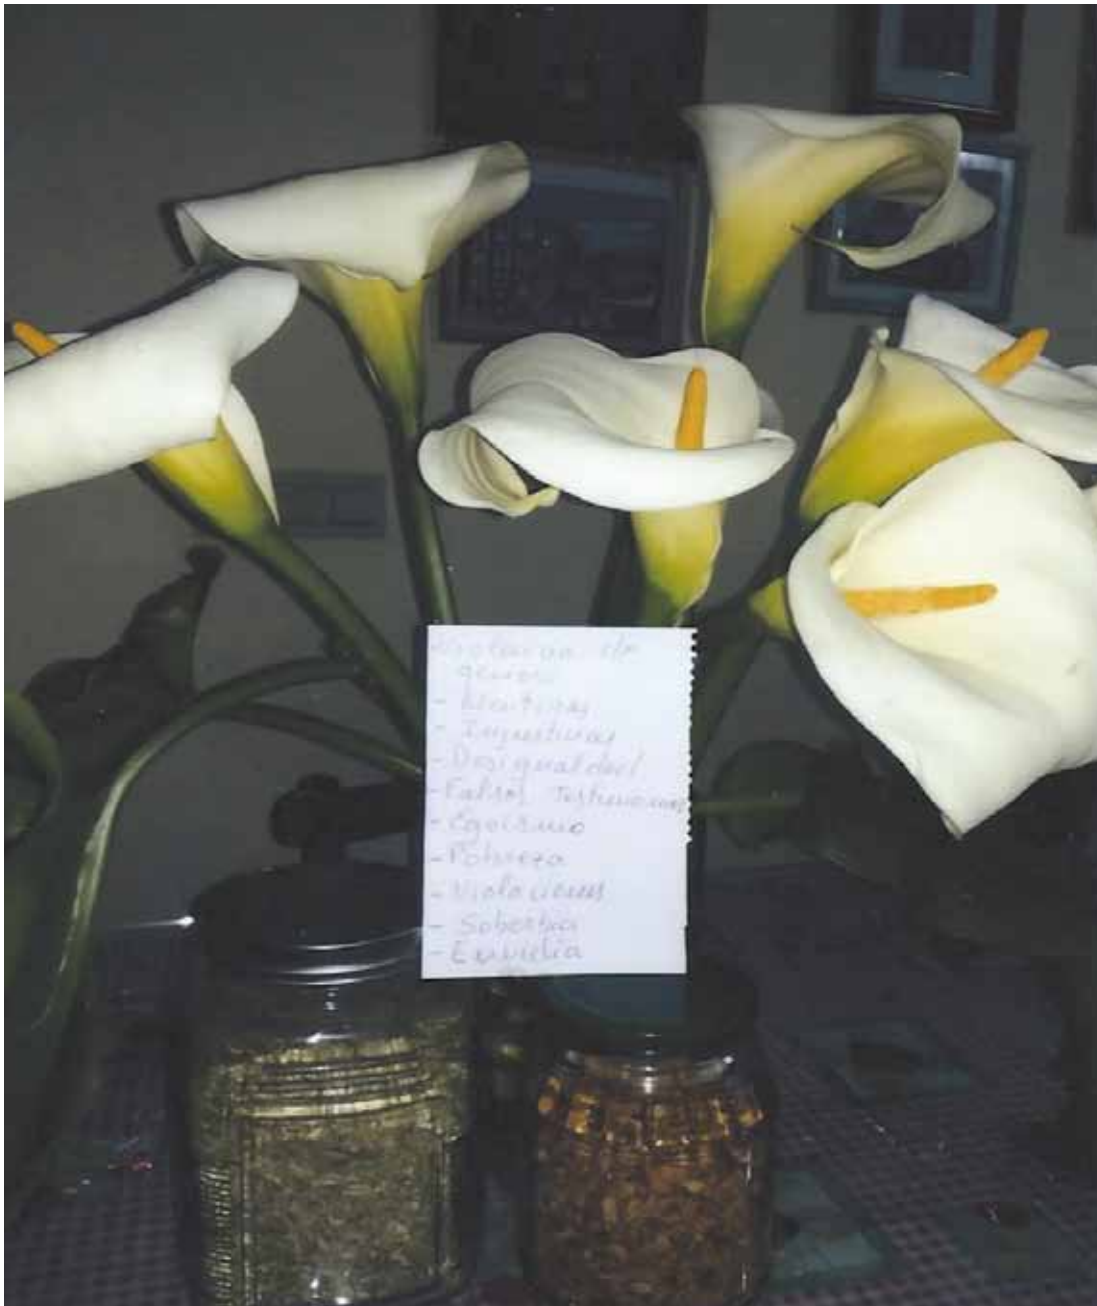 Violencia de
género
- Mentiras
- Injusticias
- Desigualdad
- Falsos Testimonios
- Egoísmo
- Pobreza
- Violaciones
- Soberbia
- Envidia